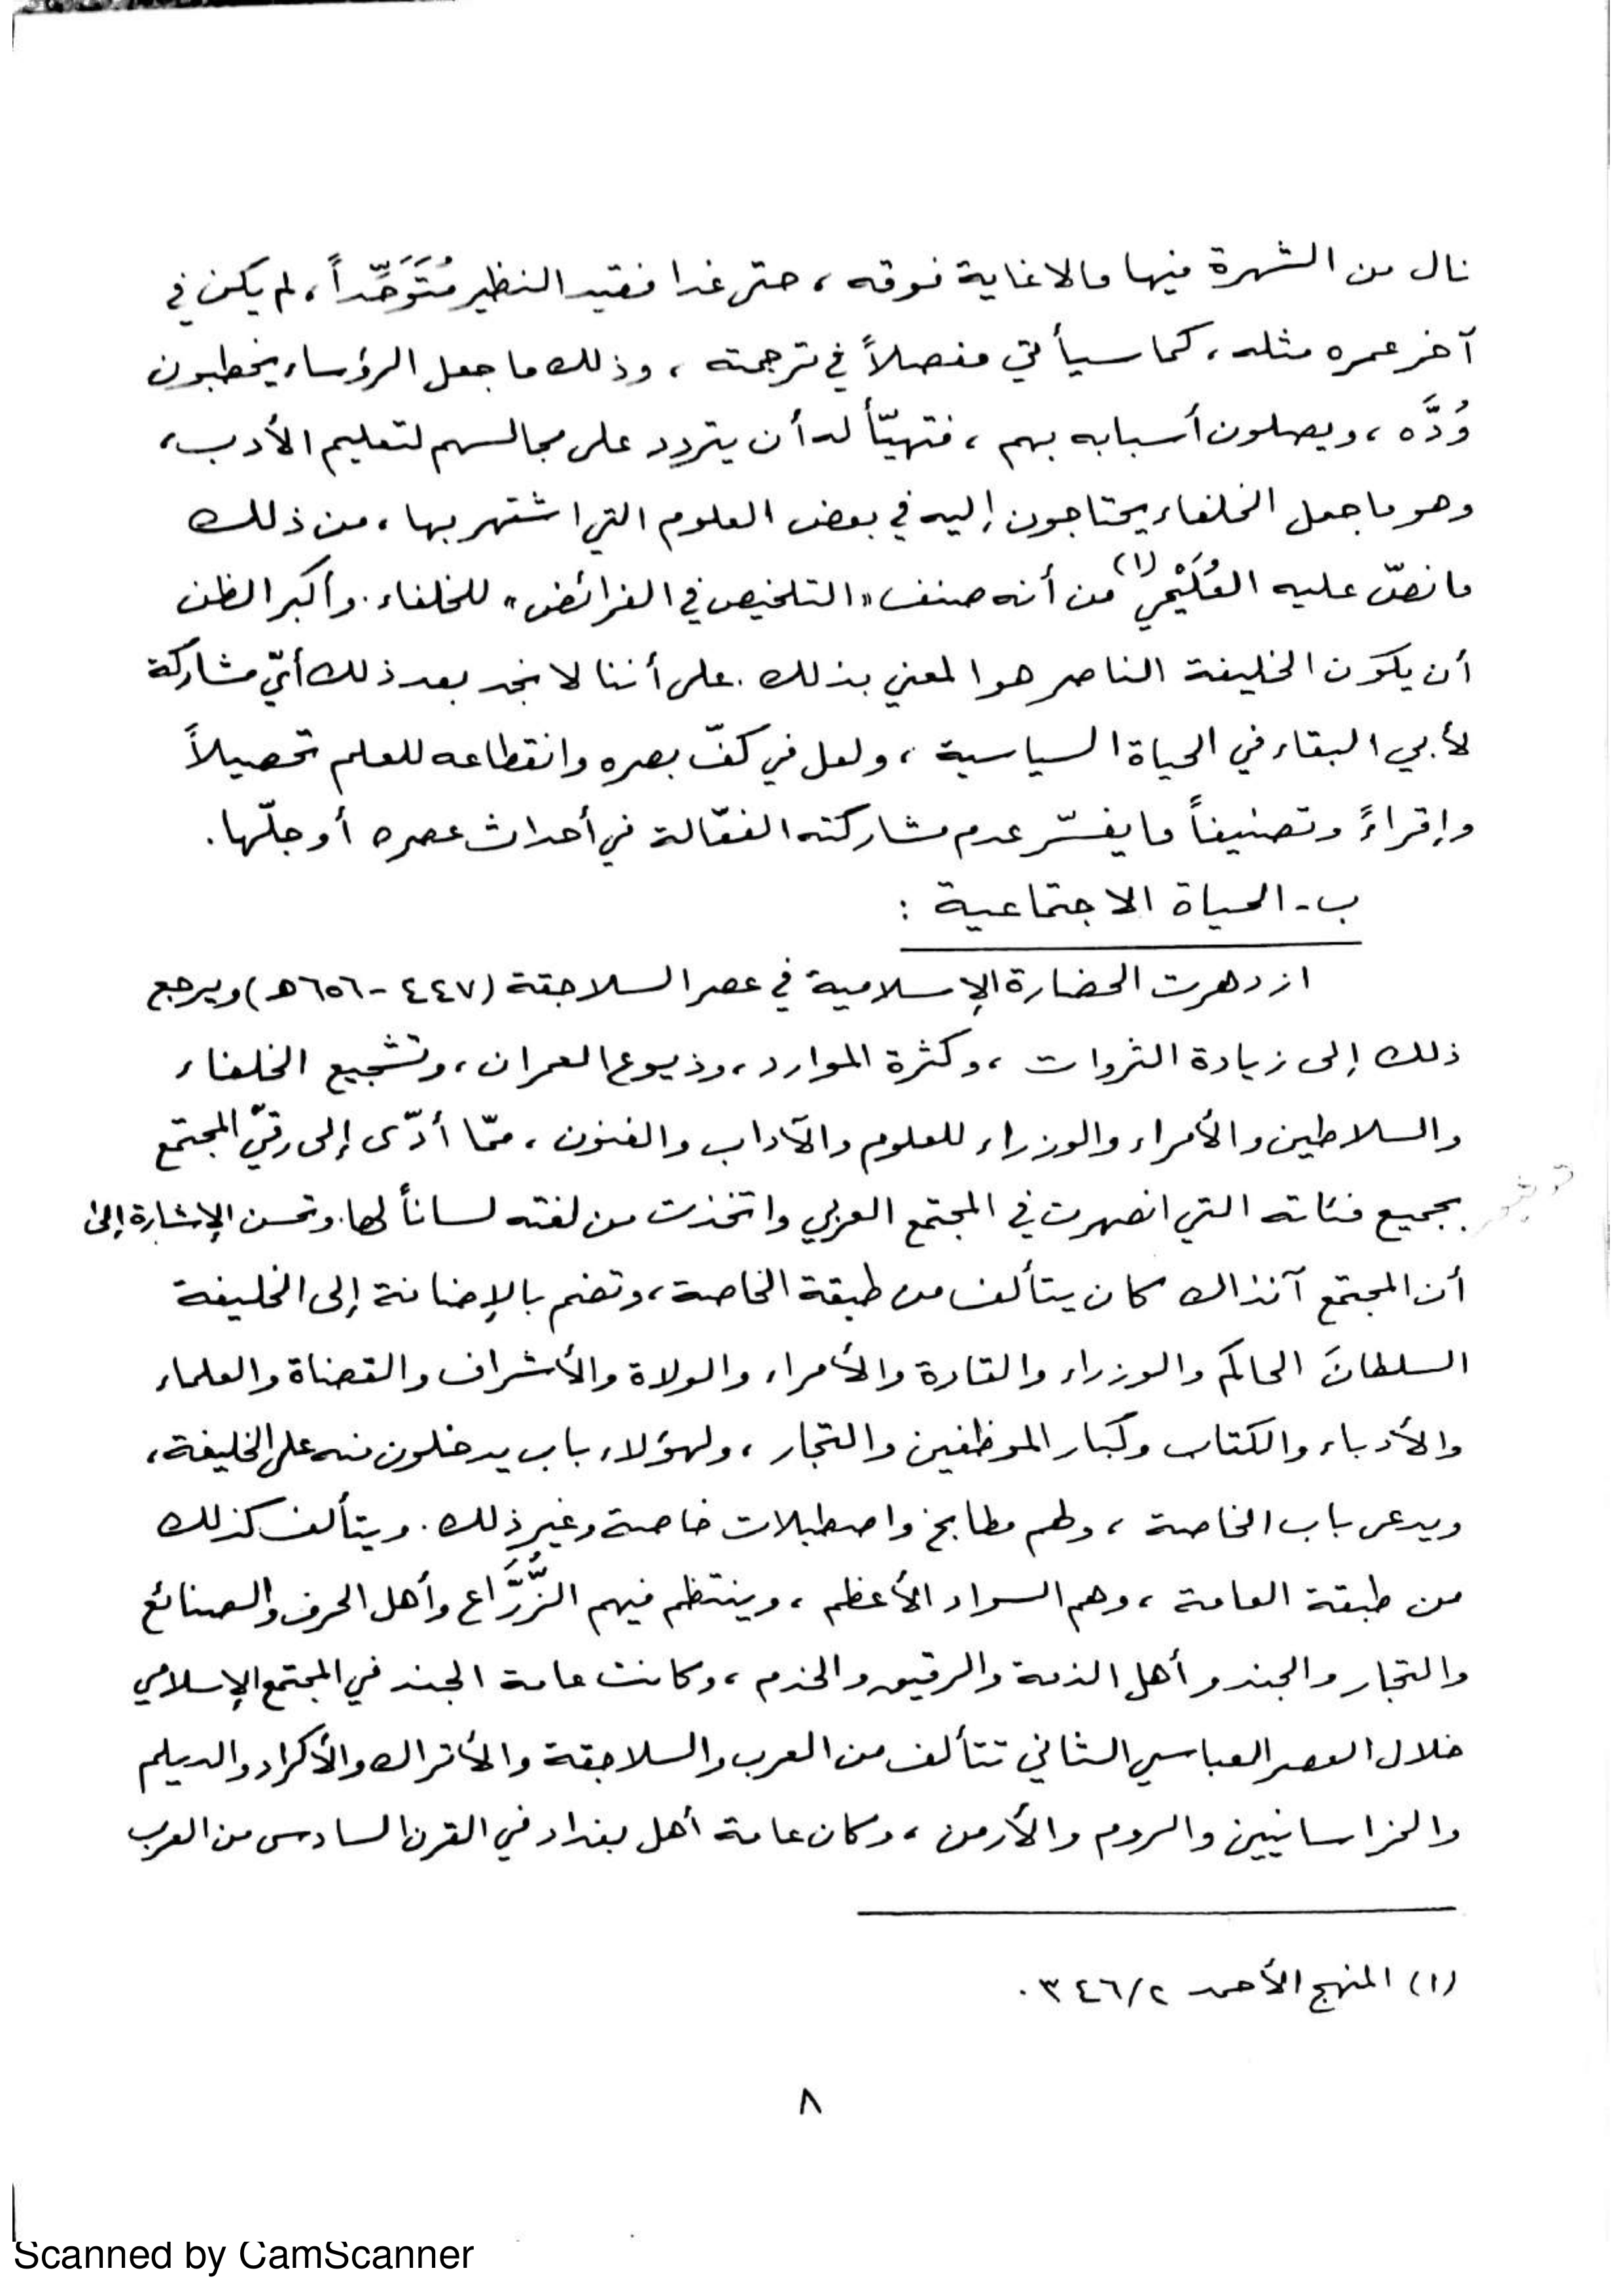 نال من الشهرة فيها مالا غاية فوقه ، حتى غدا فقيد النظير مُتَوَحِّداً ، لم يكن في
آخر عمره مثله ، كما سيأتي مفصلاً في ترجمته ، وذلك ما جعل الرؤساء يخطبون
وُدَّه ، ويصلون أسبابه بهم ، فتهيّأ له أن يتردد على مجالسهم لتعليم الأدب ،
وهو ما جعل الخلفاء يحتاجون إليه في بعض العلوم التي اشتهر بها ، من ذلك
ما نصّ عليه العُلَيْمي (١) من أنه صنف «التلخيص في الفرائض» للخلفاء . وأكبر الظن
أن يكون الخليفة الناصر هو المعني بذلك . على أننا لا نجد بعد ذلك أيّ مشاركة
لأبي البقاء في الحياة السياسية ، ولعل في كفّ بصره وانقطاعه للعلم تحصيلاً
وإقراءً وتصنيفاً ما يفسّر عدم مشاركته الفعّالة في أحداث عصره أو جلّها .
ب - الحياة الاجتماعية :
ازدهرت الحضارة الإسلامية في عصر السلاجقة (٤٤٧ - ٦٥٦ هـ) ويرجع
ذلك إلى زيادة الثروات ، وكثرة الموارد ، وذيوع العمران ، وتشجيع الخلفاء
والسلاطين والأمراء والوزراء للعلوم والآداب والفنون ، ممّا أدّى إلى رقيّ المجتمع
بجميع فئاته التي انصهرت في المجتمع العربي واتخذت من لغته لساناً لها . وتحسن الإشارة إلى
أن المجتمع آنذاك كان يتألف من طبقة الخاصة ، وتضم بالإضافة إلى الخليفة
السلطانَ الحاكم والوزراء والقادة والأمراء والولاة والأشراف والقضاة والعلماء
والأدباء والكتاب وكبار الموظفين والتجار ، ولهؤلاء باب يدخلون منه على الخليفة ،
ويدعى باب الخاصة ، ولهم مطابخ واصطبلات خاصة وغير ذلك . ويتألف كذلك
من طبقة العامة ، وهم السواد الأعظم ، وينتظم فيهم الزُّرَّاع وأهل الحرف والصنائع
والتجار والجند وأهل الذمة والرقيق والخدم ، وكانت عامة الجند في المجتمع الإسلامي
خلال العصر العباسي الثاني تتألف من العرب والسلاجقة والأتراك والأكراد والديلم
والخراسانيين والروم والأرمن ، وكان عامة أهل بغداد في القرن السادس من العرب
(١) المنهج الأحمد ٢/٣٤٦ .
٨
Scanned by CamScanner